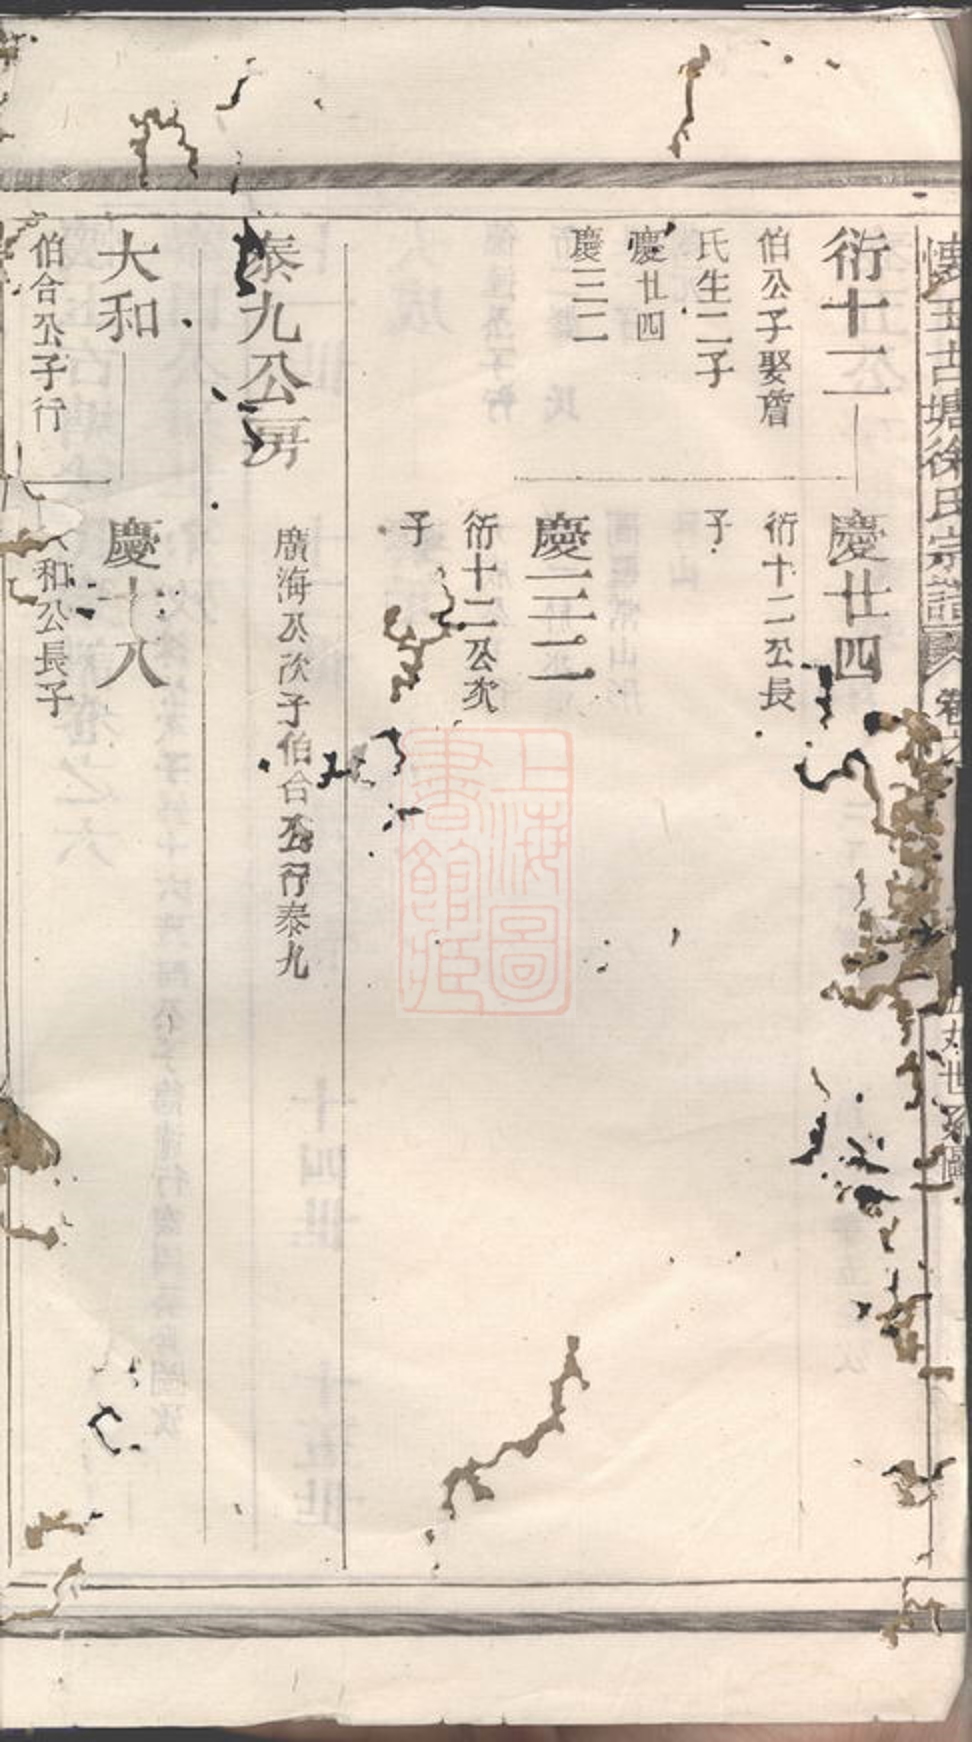 懷玉古塘徐氏宗譜
卷之
世系圖
衍十二
伯公子娶詹
氏生二子
慶廿四
慶三二
慶廿四
衍十二公長
子
慶三二
衍十二公次
子
泰九公房
廣海公次子伯合公行泰九
大和
伯合公子行
慶十八
和公長子
上海圖
書館藏